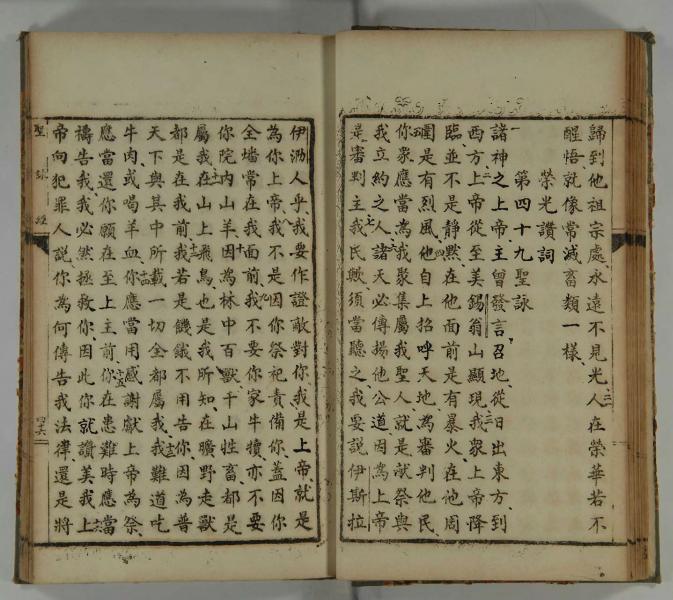 歸到他祖宗處、永遠不見光人在榮華若不
醒悟就像常滅畜類一樣、
榮光讚詞
第四十九聖詠
一
諸神之上帝主曾發言召地、從日出東方、到
西方、上帝從至美錫翁山顯現、我衆上帝降
臨、並不是靜默在他面前是有暴火、在他周
圍是有烈風、他自上招呼天地、為審判他民、
你衆應當為我聚集屬我聖人就是献祭與
我立約之人、諸天必傳揚他公道因為上帝
是審判主我民歟須當聽之我要說伊斯拉
伊泐人乎、我要作證敵對你、我是上帝、就是
為你上帝、我不是因你祭祀責備你、蓋因你
全墻常在我面前、我不要你家牛犢、亦不要
你院内山羊、因為林中百獸千山牲畜都是
屬我、在山上飛鳥也是我所知、在曠野走獸
都是在我前、我若是饑餓不用告你、因為普
天下與其中所載一切全都屬我、我難道吃
牛肉或喝羊血、你應當用感謝獻上帝為祭、
應當還你願在至上主前、你在患難時應當
禱告我、我必然拯救你、因此你就讚美我上
帝向犯罪人說、你為何傳告我法律、還是將
聖詠經
四六